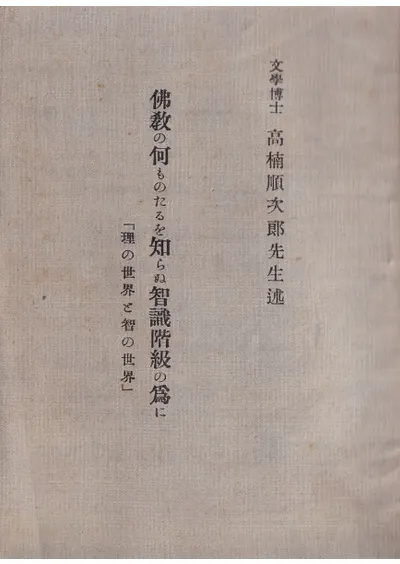 文學博士 高楠順次郎先生述
佛教の何ものたるを知らぬ智識階級の爲に
「理の世界と智の世界」